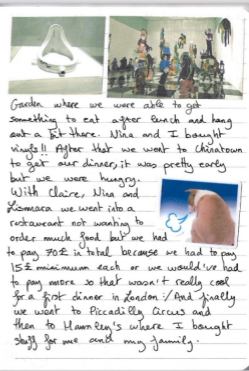 Garden where we were able to get
something to eat after lunch and hang
out a bit there. Nina and I bought
rings!! After that we went to Chinatown
to get our dinner, it was pretty early
but we were hungry.
With Claire, Nina and
we went into a
restaurant not wanting to
order much food but we had
to pay 30£ in total because we had to pay
15£ minimum each or we would've had
to pay more so that wasn't really cool
for a first dinner in London :/ And finally
we went to Piccadilly Circus and
then to Hamley's where I bought
stuff for me and my family.